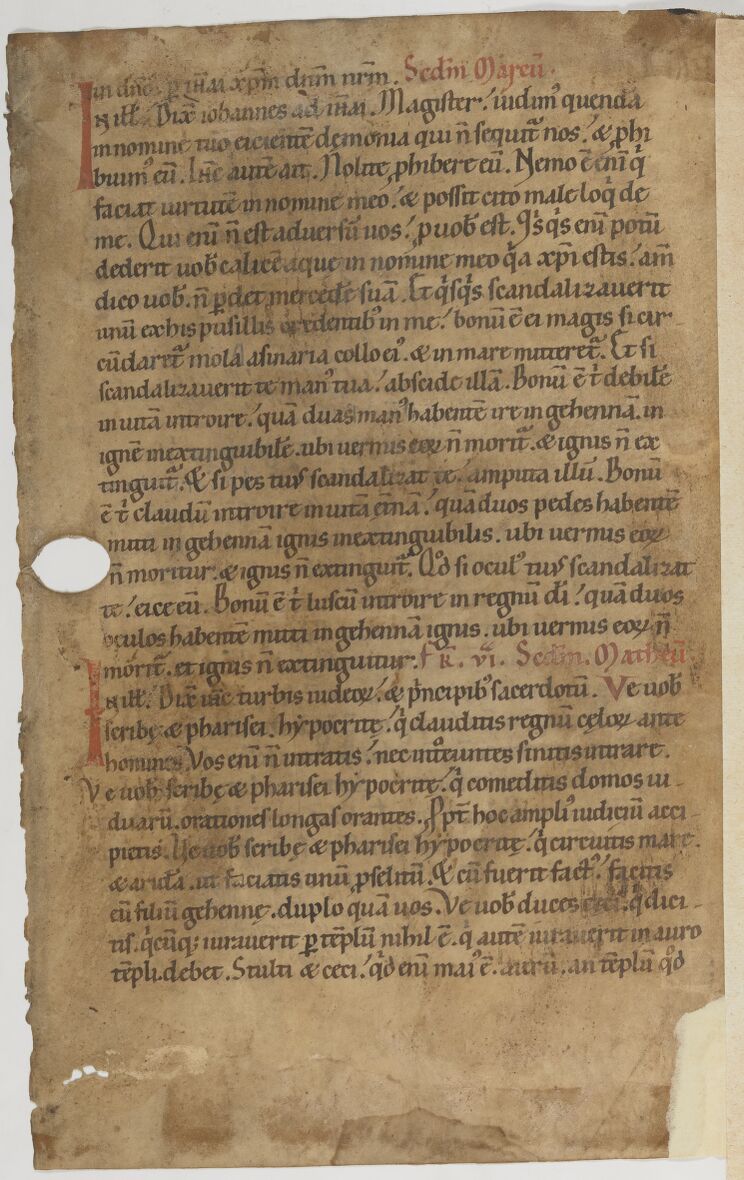 in dn̄o. ꝑ ih̄m xp̄m dnm̄ nrm̄. Scd̄m Marcū.
In ill̄. Dix̄ iohannes ad ih̄m. Magister. uidim᷒ quendā
in nomine tuo eicientē dęmonia qui n̄ sequit᷑ nos. & ꝓhi
buim᷒ eū. Ih̄c autē ait. Nolite ꝓhibere eū. Nemo ē eni̅ q̇
faciat uirtutē in nomine meo. & possit cito male loq̇ de
me. Qui eni̅ n̄ est aduersū uos. ꝓ uob̄ est. Q̇sq̇s eni̅ potū
dederit uob̄ calicē aque in nomine meo q̇a xp̄i estis. am̄
dico uob̄. n̄ ꝑdet mercedē suā. Et q̇sq̇s scandalizauerit
unū ex his pusillis credentib᷒ in me. bonū ē ei magis si cir-
cūdaret᷑ mola asinaria collo ei᷒. & in mare mitteret᷑. Et si
scandalizauerit te man᷒ tua. abscide illā. Bonū ē t̄ debilē
in uitā introire. quā duas man᷒ habentē ire in gehennā. in
ignē inextinguibilē. ubi uermis eoꝝ n̄ morit᷑. & ignis n̄ ex
tinguit᷑. & si pes tuus scandalizat te. amputa illū. Bonū
ē t̄ claudū introire in uitā et̄nā. quā duos pedes habentē
mitti in gehennā ignis inextinguibilis. ubi uermis eoꝝ
n̄ moritur. & ignis n̄ extinguit᷑. Qd̄ si ocul᷒ tuus scandalizat
te. eice eū. Bonū ē t̄ luscū introire in regnū dī. quā duos
oculos habentē mitti in gehennā ignis. ubi uermis eoꝝ n̄
morit᷑. et ignis n̄ extinguitur. Fr̄. vi. Scd̄m. Matheū
In ill̄. Dix̄ ih̄c turbis iudeoꝝ. & p̄ncipib᷒ sacerdotū. Ve uob̄
scribę & pharisei. hypocritę. q̇ clauditis regnū cęloꝝ ante
homines. Vos eni̅ n̄ intratis. nec intᵒeuntes sinitis intrare.
Ve uob̄ scribę & pharisei hypocritę. q̇ comeditis domos ui-
duarū. orationes longas orantes. Ꝓpt̄ hoc ampli᷒ iudiciū acci-
pietis. Ve uob̄ scribę & pharisei hypocritę. q̇ circuitis mare.
& aridā. ut faciatis unū ꝓselitū. & cū fuerit fact᷒. facitis
eū filiū gehennę. duplo quā uos. Ve uob̄ duces ceci. q̇ dici-
tis. q̇cūq; iurauerit ꝑ tēplū nihil ē. q̇ autē iurauerit in auro
tēpli. debet. Stulti & ceci. q̇d eni̅ mai᷒ ē. aurū. an tēplū qd̄